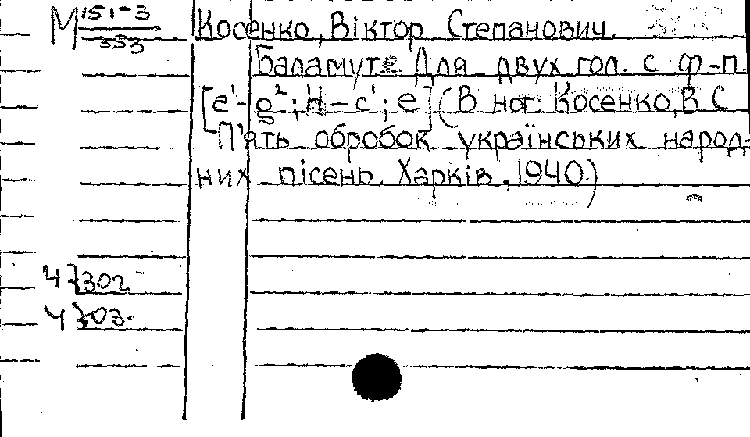 М 151-3
553
Косенко, Віктор Степанович.
Баламуте. Для двух гол. с ф-п.
[e'-g²; H-c'; e] (В нот: Косенко, В. С.
П'ять обробок українських народ-
них пісень. Харків, 1940)